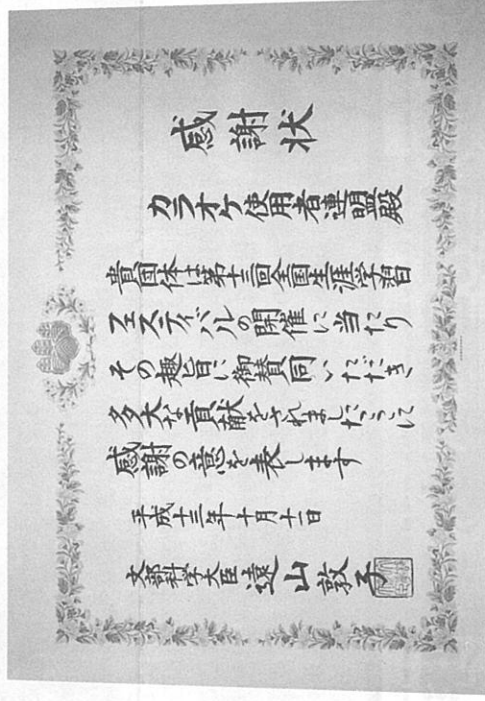 感謝状
カラオケ使用者連盟殿
貴団体は第十三回全国生涯学習
フェスティバルの開催に当たり
その趣旨に御賛同いただき、
多大な貢献をされましたここに
感謝の意を表します
平成十三年十月十一日
文部科学大臣 遠山敦子